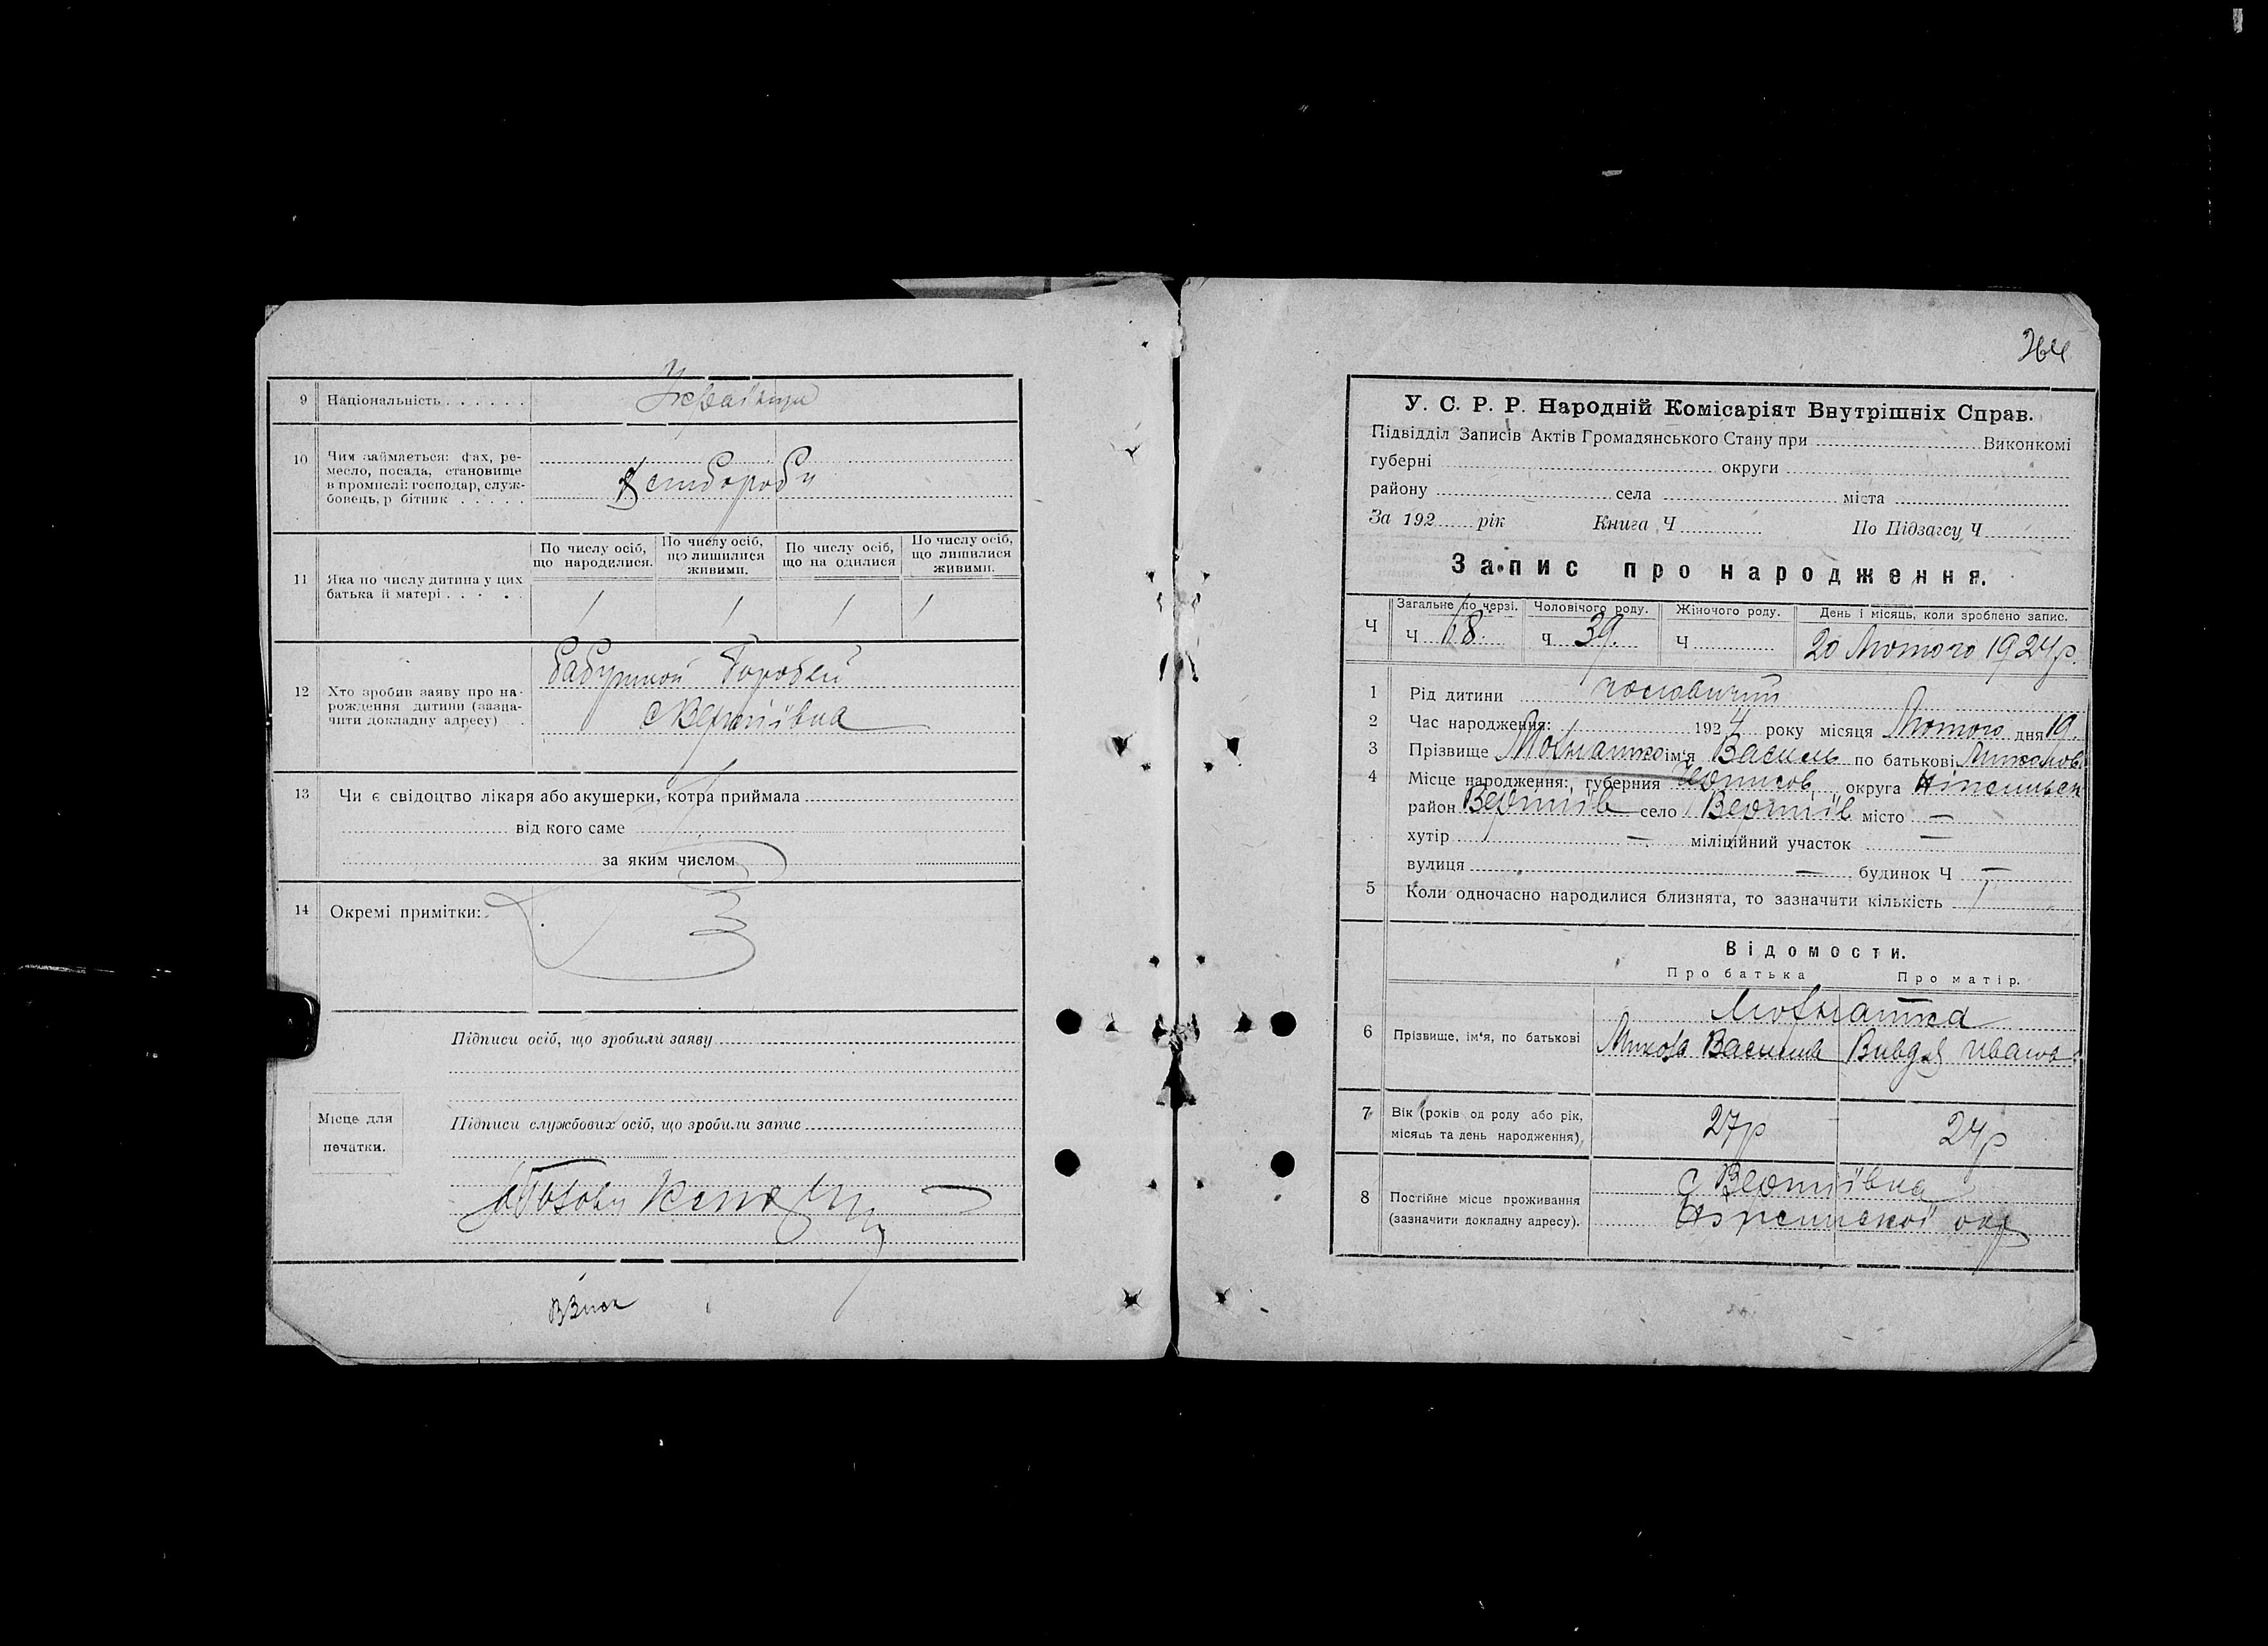 9 Національність . . . . . . Українци
10 Чим займається: фах, ре-
месло, посада, становище
в промислі: господар, служ-
бовець, р бітник . . . . .
Хлибороби
11 Яка по числу дитина у цих
батька й матері . . . . .
По числу осіб, що народилися.
По числу осіб, що лишилися живими.
По числу осіб, що на одилися
По числу осіб, що лишилися живими.
1 1 1 1
12 Хто зробив заяву про на-
рождення дитини (зазна-
чити докладну адресу) .
бабушкой Горобей
с Вертіївка
13 Чи є свідоцтво лікаря або акушерки, котра приймала
від кого саме
за яким числом
14 Окремі примітки:
Підписи осіб, що зробили заяву
Місце для
печатки.
Підписи службових осіб, що зробили запис
264
У. С. Р. Р. Народній Комісаріят Внутрішніх Справ.
Підвідділ Записів Актів Громадянського Стану при Виконкомі
губерні округи
району села міста
За 192 рік Книга Ч По Підзагсу Ч
Запис про народження.
Ч
Загальне по черзі. Чоловічого роду. Жіночого роду. День і місяць, коли зроблено запис.
Ч 68. Ч 39. Ч 20 Лютого 1924 р.
1 Рід дитини
2 Час народження: 1924 року місяця Лютого дня 19.
3 Прізвище ім'я Василь по батькові
4 Місце народження: губерния Чернигов округа Ніженськ
район Вертіїв село Вертіїв місто —
хутір — міліційний участок —
вулиця — будинок Ч —
5 Коли одночасно народилися близнята, то зазначити кількість
Відомости.
Про батька Про матір.
6 Прізвище, ім'я, по батькові
Микола Василів Вивдя Ивано
7 Вік (років од роду або рік,
місяць та день народження)
27 р 24 р
8 Постійне місце проживання
(зазначити докладну адресу).
с Вертіївка
Ніженської окр